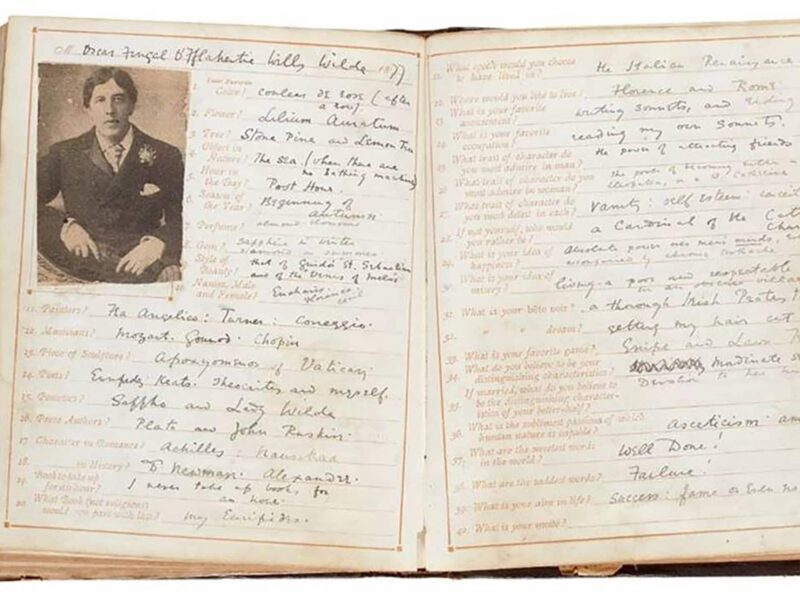 M Oscar Fingal O'Flahertie Wills Wilde 1877
Your Favorite
1. Color? couleur de rose (after
a rose)
2. Flower? Lilium Auratum
3. Tree? Stone Pine and Lemon Tree
4. Object in
Nature? The Sea (when there are
no bathing machines
5. Hour in
the Day? Post Hour.
6. Season of
the Year? Beginning of
autumn
7. Perfume? almond blossom
8. Gem? Sapphire in winter
diamond in summer
9. Style of
Beauty? that of Guido's St. Sebastian
and of the Venus of Melos
10. Names, Male
and Female? Eucharis: Florence
11. Painters? Fra Angelico: Turner: Correggio.
12. Musicians? Mozart. Gounod. Chopin
13. Piece of Sculpture? Apoxyomenos of Vatican
14. Poets? Euripedes. Keats. Theocritus and myself.
15. Poetesses? Sappho and Lady Wilde
16. Prose Authors? Plato and John Ruskin.
17. Character in Romance? Achilles: Nausikaa
18. in History? Newman. Alexander.
19. Book to take up
for an hour? I never take up books for
an hour.
20. What Book (not religious)
would you part with last? my Euripides.
21. What epoch would you choose
to have lived in? The Italian Renaissance
22. Where would you like to live? Florence and Rome
23. What is your favorite
amusement? writing sonnets, and riding
24. What is your favorite
occupation? reading my own Sonnets.
25. What trait of character do
you most admire in man? the power of attracting friends
26. What trait of character do
you most admire in woman? the power of becoming either a
Cleopatra, or a St Catherine
27. What trait of character do
you most detest in each? Vanity: self esteem: conceit
28. If not yourself, who would
you rather be? a Cardinal of the Cat
29. What is your idea of
happiness? absolute power over men's minds,
accompanied by chronic toothache
30. What is your idea of
misery? living a poor and respectable
in an obscure village
31. What is your bête noir? a thorough Irish Protes
32. " " " dream? getting my hair cut
33. What is your favorite game? Snipe and Lawn
34. What do you believe to be your
distinguishing characteristics?
35. If married, what do you believe to
be the distinguishing character-
istics of your better-half? Devotion to her
36. What is the sublimest passion of which
human nature is capable? asceticism
37. What are the sweetest words
in the world? Well Done!
38. What are the saddest words? Failure!
39. What is your aim in life? Success: fame or even no
40. What is your motto?